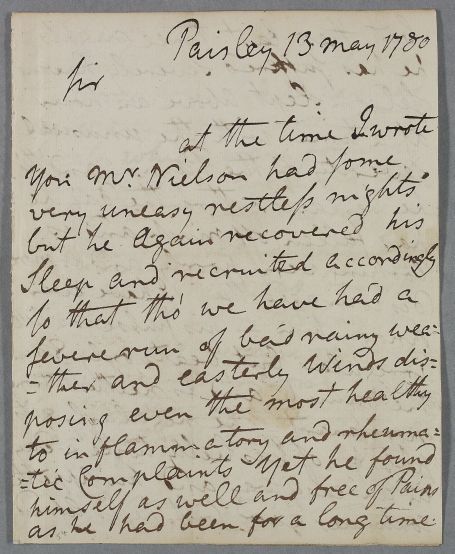 Paisley 13 may 1780
Sir
at the time I wrote
You Mr. Nielson had some
very uneasy restless nights
but he Again recovered his
Sleep and recruited accordingly
so that tho' we have had a
severe run of bad rainy wea=
=ther and easterly Winds dis=
posing even the most healthy
to inflammatory and rheuma=
=tic Complaints Yet he found
himself as well and free of Pains
as he had been for a long time